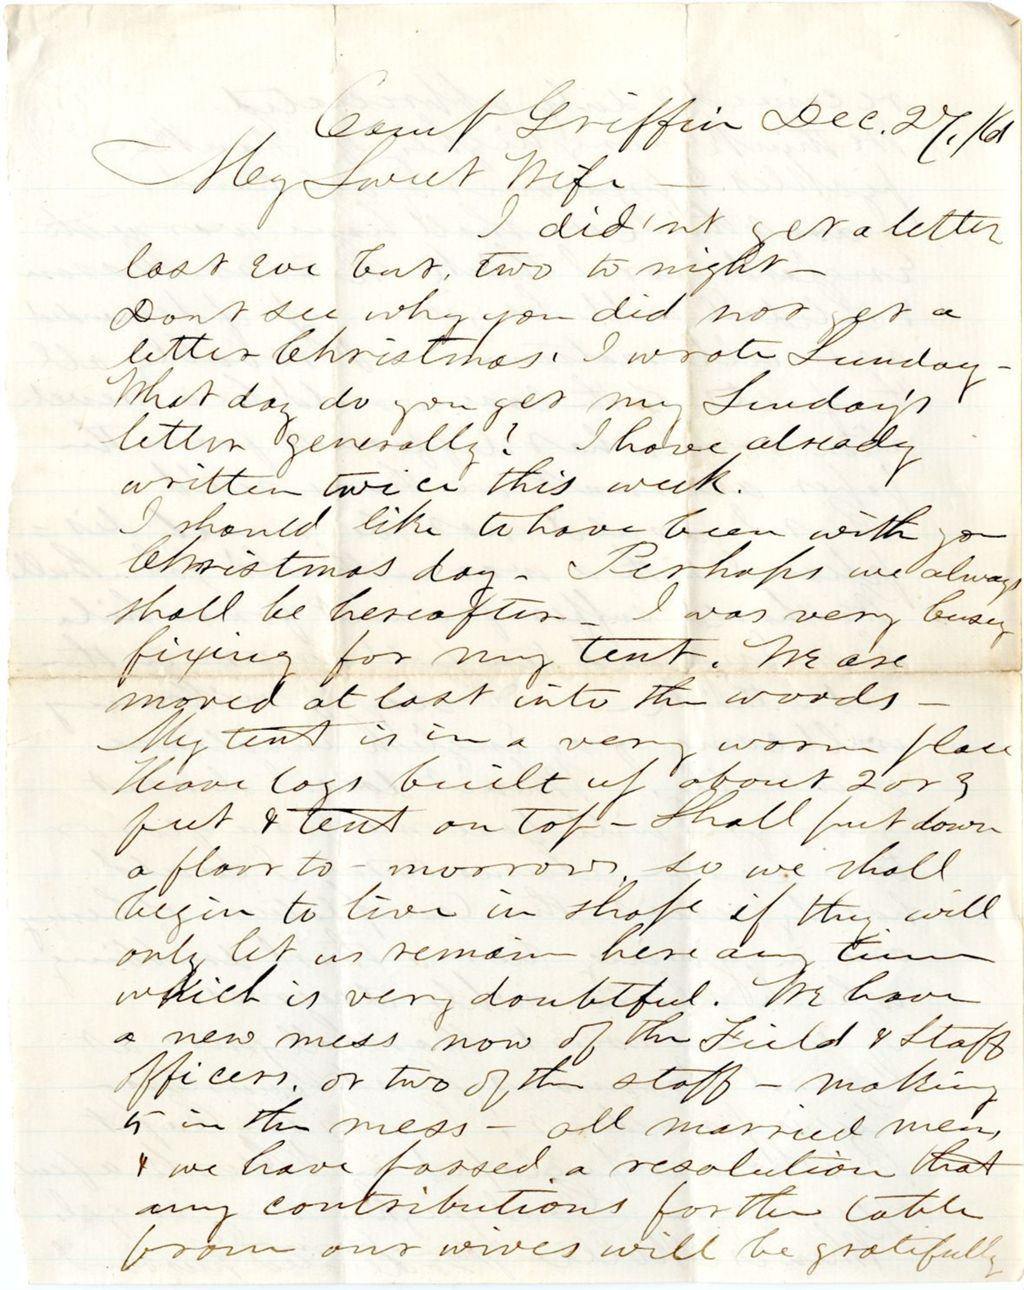 Camp Griffin Dec. 27, /61
My Sweet Wife —
I did'nt get a letter
last eve but, two to night —
Dont see why you did not get a
letter Christmas. I wrote Sunday —
What day do you get my Sunday's
letter generally? I have already
written twice this week.
I should like to have been with you
Christmas day - Perhaps we always
shall be hereafter — I was very busy
fixing for my tent. We are
moved at last into the woods —
My tent is in a very warm place
Have logs built up about 2 or 3
feet & tent on top — Shall put down
a floor to-morrow, so we shall
begin to live in shape if they will
only let us remain here any time
which is very doubtful. We have
a new mess now of the Field & Staff
officers, or two of the staff — making
5 in the mess — all married men,
& we have passed a resolution that
any contributions for the table
from our wives will be gratefully